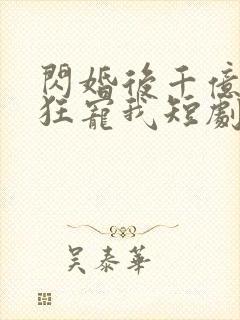 閃婚後千億
狂寵我短劇
吳泰華